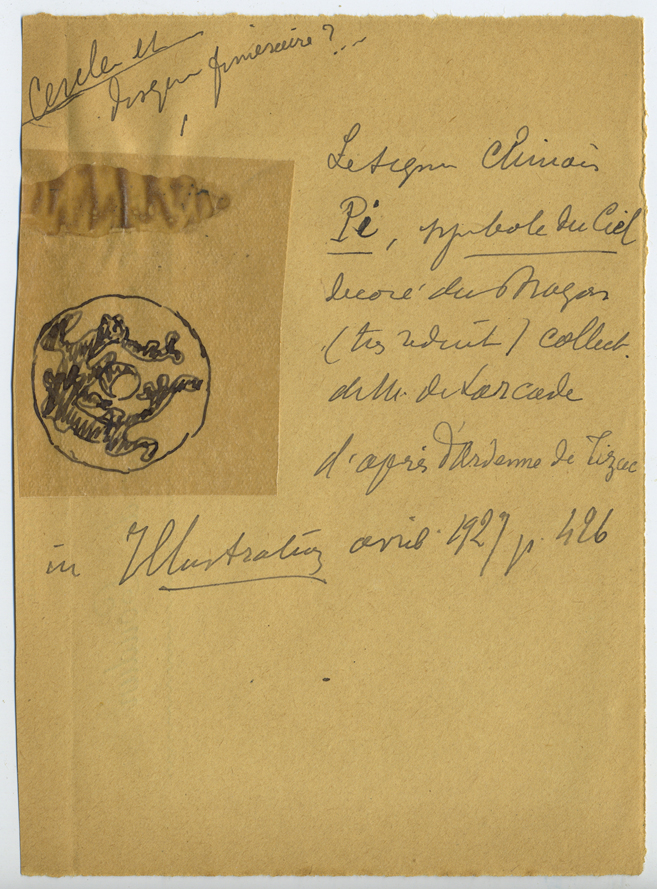 Cercles et
disque funéraire ? ...
Le signe Chinois
Pi, symbole du Ciel
décoré du Dragon
(très réduit) collect.
de M. de Larcade
d'après d'Ardenne de Tizac
in Illustration avril 1927 p. 426